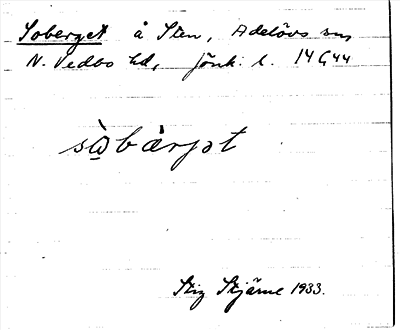 Soberget å Sten, Adelövs sn,
N. Vedbo hd, Jönk. l. 14 G44
sò̱bà̀rjət
Stig Stjärne 1933.